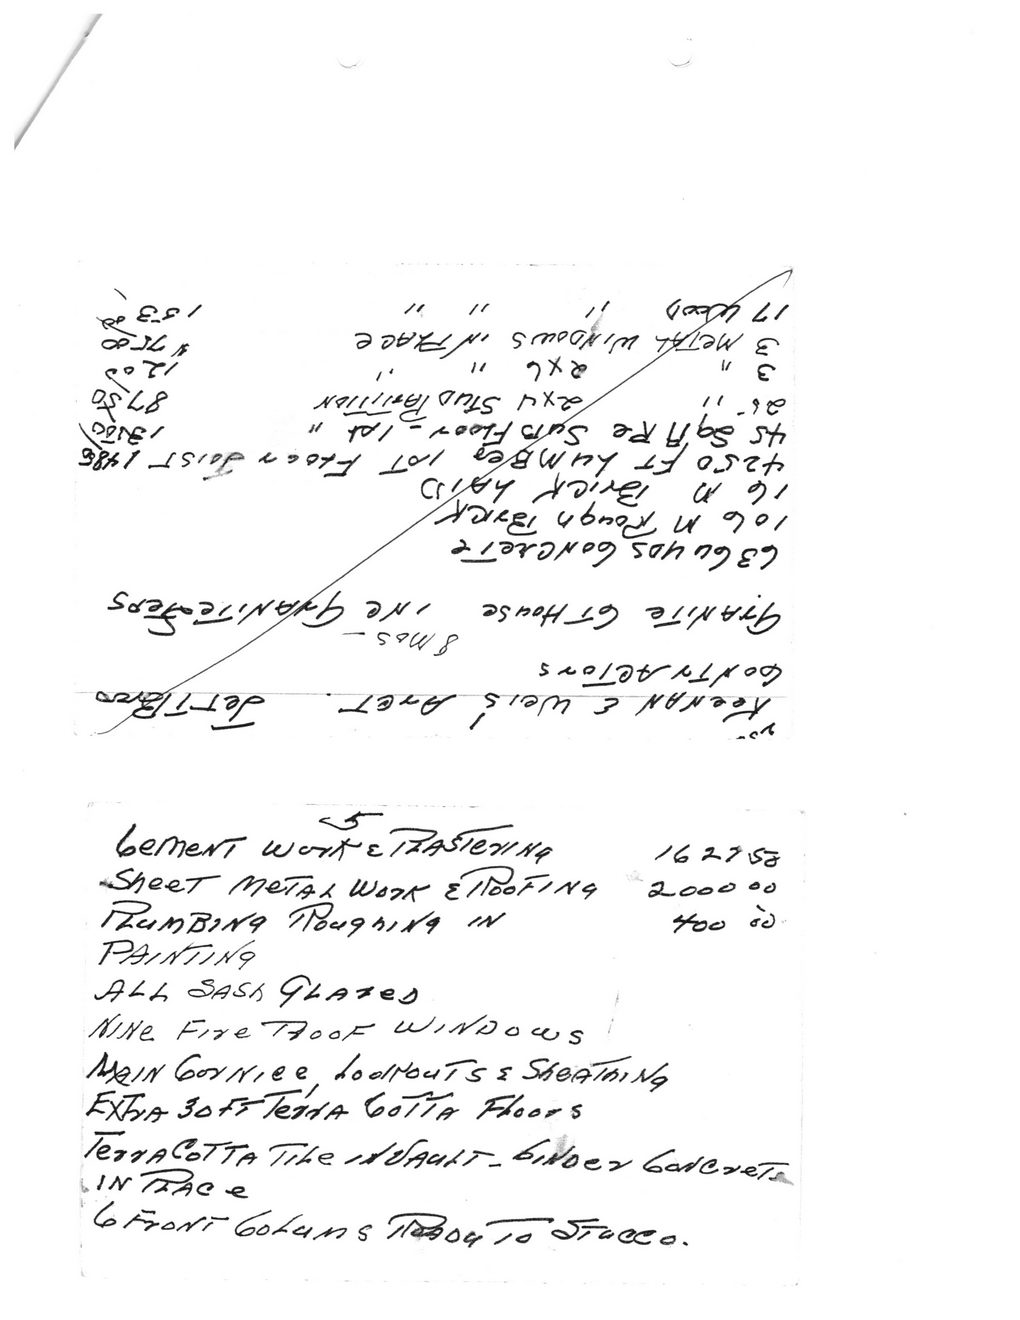 Keenan & Weis, Arct.
Contractors
8 mos -
Granite Ct House inc Granite Steps
636 yds Concrete
106 M Rough Brick
16 M Brick Laid
4250 Ft Lumber 1st Floor Joist 1485
45 Sqare Sub Floor - 1st " 13500
26 " 2x4 Stud Partition 8750
3 " 2x6 " " 1200
3 Metal Windows in Place $7500
17 Wood " " " 153 00
5
Cement Work & Plastering 1627 50
Sheet Metal Work & Roofing 2000 00
Plumbing Roughing in 400 00
Painting
All Sash Glazed
Nine Fire Proof Windows
Main Cornice, Lookouts & Sheathing
Extra 30 Ft Terra Cotta Floors
Terra Cotta Tile in Vault - Cinder Concrete
in Place
6 Front Colums Ready To Stucco.